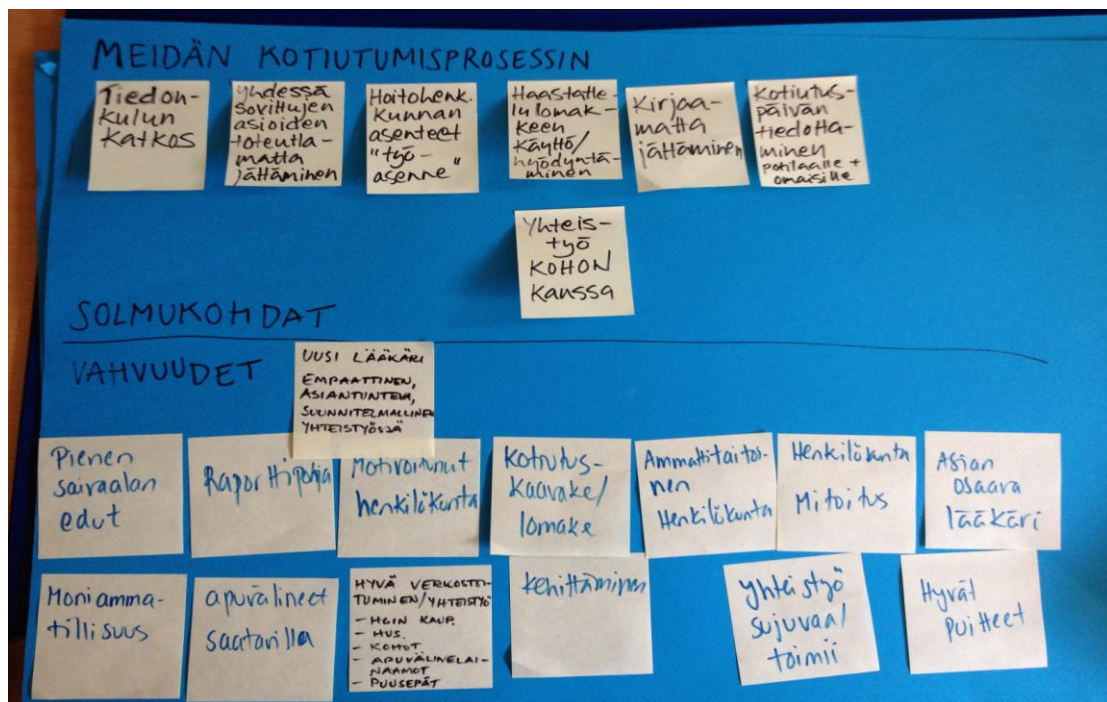 MEIDÄN KOTIUTUMISPROSESSIN
Tiedon-
kulun
katkos
yhdessä
sovittujen
asioiden
toteutta-
matta
jättäminen
Hoitohenk.
kunnan
asenteet
"työ-
asenne"
Haastatte-
lulomak-
keen
käyttö/
hyödyntä-
minen
Kirjaa-
matta
jättäminen
Kotiutus-
päivän
tiedotta-
minen
potilaalle +
omaisille
Yhteis-
työ
KOHON
kanssa
SOLMUKOHDAT
VAHVUUDET
UUSI LÄÄKÄRI
EMPAATTINEN,
ASIANTUNTEVA,
SUUNNITELMALLINEN
YHTEISTYÖSSÄ
Pienen
sairaalan
edut
Raporttipohja
Motivoitunut
henkilökunta
Kotiutus-
kaavake/
lomake
Ammattitaitoi-
nen
Henkilökunta
Henkilökunta
Mitoitus
Asian
osaava
lääkäri
Moniamma-
tillisuus
apuvälineet
saatavilla
HYVÄ VERKOSTOI-
TUMINEN/YHTEISTYÖ
- HGIN KAUP.
- HUS.
- KOHOT
- APUVÄLINELAI-
NAAMOT
- PUUSEPÄT
Kehittäminen
yhteistyö
sujuvaa/
toimii
Hyvät
puitteet